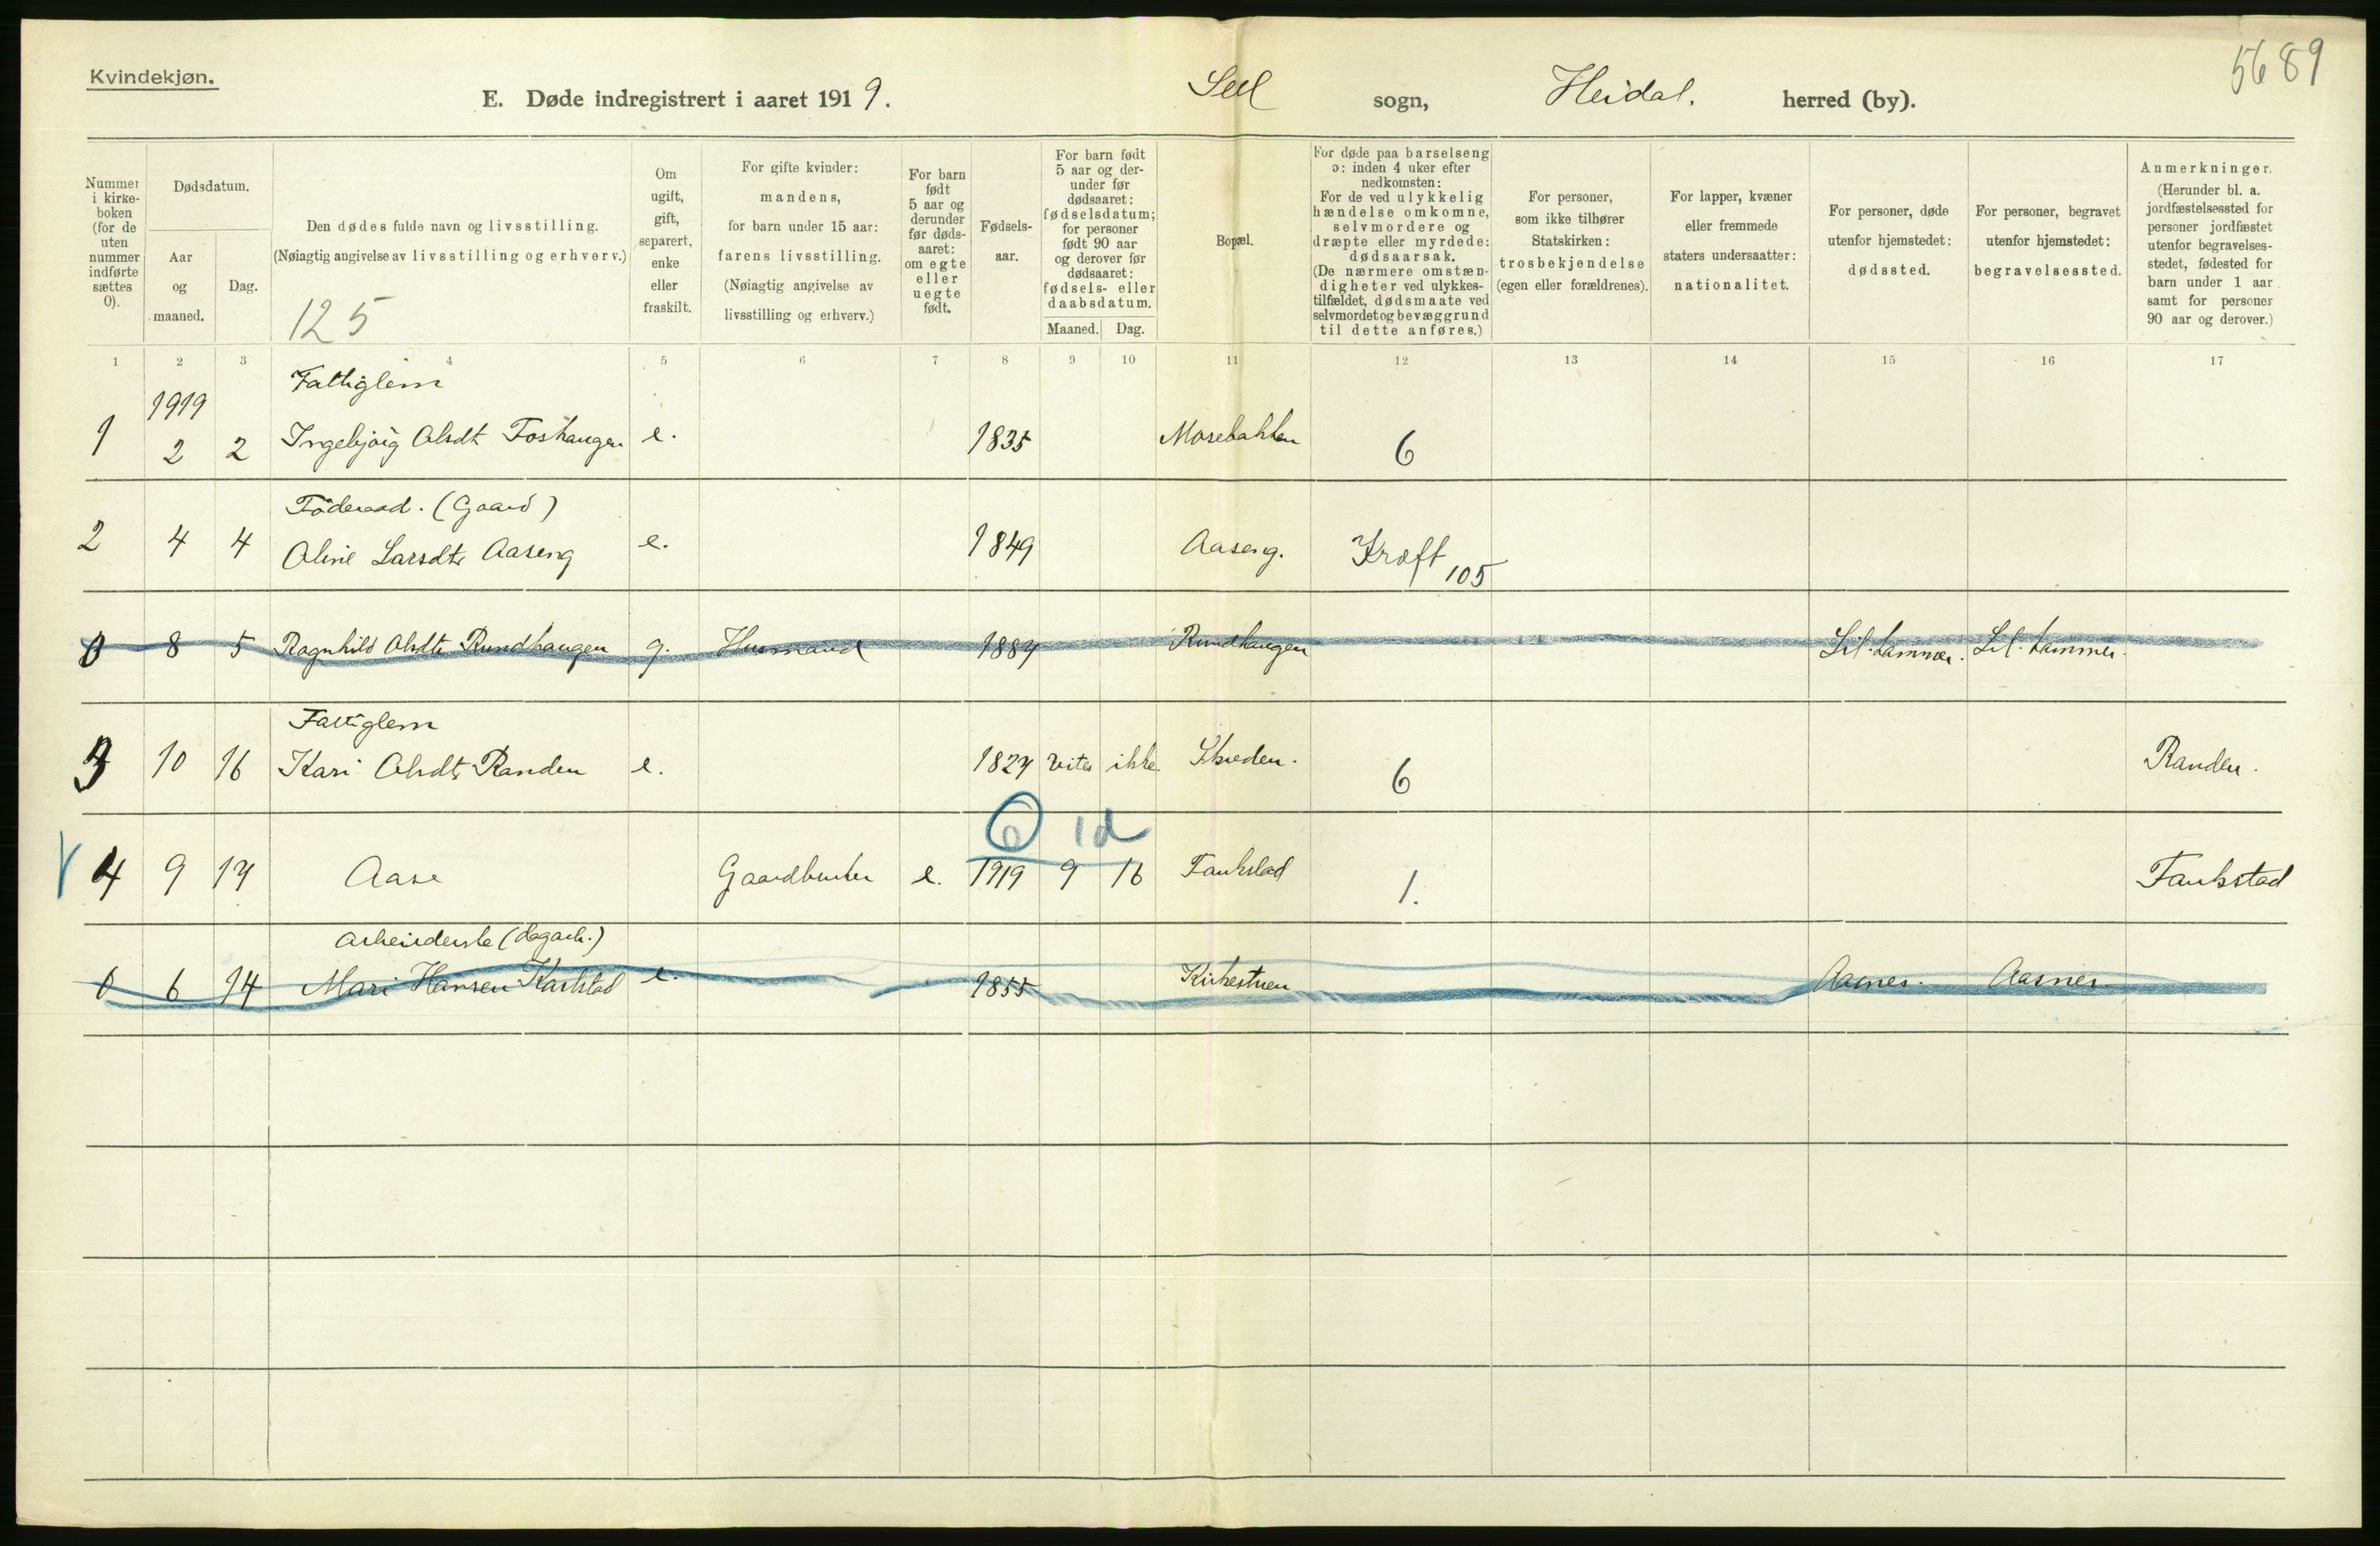 Kvindekjøn.
5689
E. Døde indregistrert i aaret 1919. Sell sogn, Heidal. herred (by).
Nummer i kirke-boken (for de uten nummer indførte sættes 0).
Dødsdatum.
Aar og maaned.
Dag.
Den dødes fulde navn og livsstilling.
(Nøiagtig angivelse av livsstilling og erhverv.)
125
Om ugift, gift, separert, enke eller fraskilt.
For gifte kvinder: mandens, for barn under 15 aar: farens livsstilling. (Nøiagtig angivelse av livsstilling og erhverv.)
For barn født 5 aar og derunder før døds-aaret: om egte eller uegte født.
Fødsels-aar.
For barn født 5 aar og der-under før dødsaaret: fødselsdatum; for personer født 90 aar og derover før dødsaaret: fødsels- eller daabsdatum.
Maaned. Dag.
Bopæl.
For døde paa barselseng ɔ: inden 4 uker efter nedkomsten: For de ved ulykkelig hændelse omkomne, selvmordere og dræpte eller myrdede: dødsaarsak. (De nærmere omstæn-digheter ved ulykkes-tilfældet, dødsmaate ved selvmordet og bevæggrund til dette anføres.)
For personer, som ikke tilhører Statskirken: trosbekjendelse (egen eller forældrenes).
For lapper, kvæner eller fremmede staters undersaatter: nationalitet.
For personer, døde utenfor hjemstedet: dødssted.
For personer, begravet utenfor hjemstedet: begravelsessted.
Anmerkninger. (Herunder bl. a. jordfæstelsessted for personer jordfæstet utenfor begravelses-stedet, fødested for barn under 1 aar samt for personer 90 aar og derover.)
1 2 3 4 5 6 7 8 9 10 11 12 13 14 15 16 17
1919 Fattiglem
1 2 2 Ingebjørg Olsdt Foshaugen e. 1835 Morebakken 6
Føderaad. (Gaard)
2 4 4 Oline Larsdt Aaseng e. 1849 Aaseng. Kræft 105
0 8 5 Ragnhild Olsdt Rundhaugen g. Husmand 1884 Rundhaugen Lil.hammer. Lil.hammer.
Fattiglem
3 10 16 Kari Olsdt Randen e. 1827 vites ikke 6 Randen.
6 1d
4 9 17 Aase Gaardbruker e. 1919 9 16 Faukstad 1. Faukstad
Arbeiderske (dagarb.)
0 6 14 Mari Hansen Karlstad e. 1855 Kirkestuen Aasnes. Aasnes.